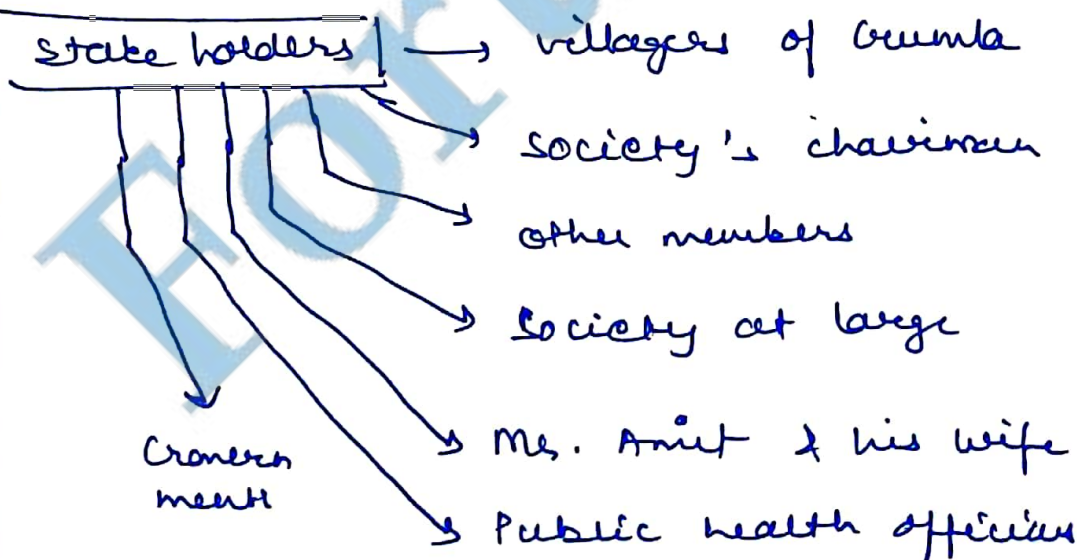 Stake holders → villagers of Gumla
society's chairman
other members
Society at large
Mr. Amit & his wife
Public health officials
Government
For